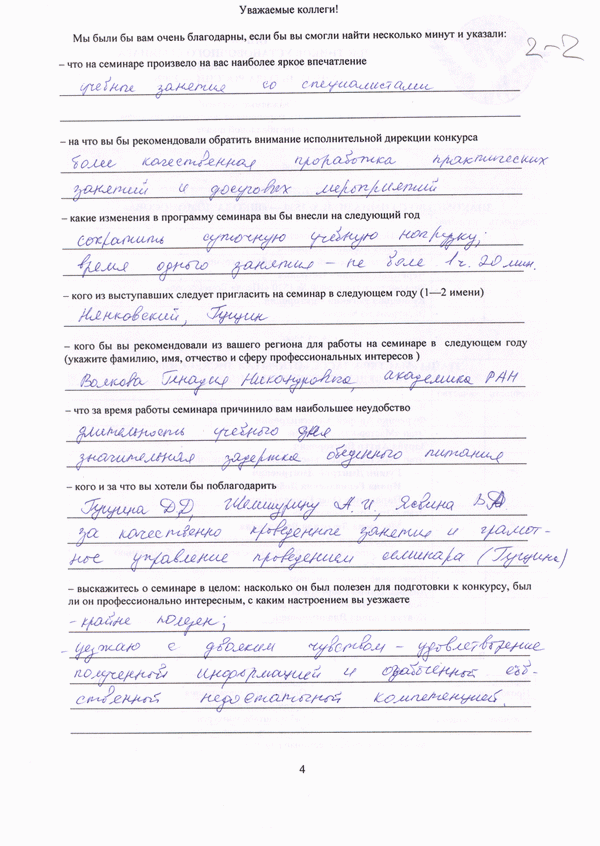 Уважаемые коллеги!
Мы были бы вам очень благодарны, если бы вы смогли найти несколько минут и указали:
2-2
– что на семинаре произвело на вас наиболее яркое впечатление
учебное занятие со специалистами
– на что вы бы рекомендовали обратить внимание исполнительной дирекции конкурса
более качественная проработка практических
занятий и досуговых мероприятий
– какие изменения в программу семинара вы бы внесли на следующий год
сократить суточную учебную нагрузку;
время одного занятия – не боле 1 ч. 20 мин.
– кого из выступавших следует пригласить на семинар в следующем году (1—2 имени)
Нянковский, Гущин
– кого бы вы рекомендовали из вашего региона для работы на семинаре в следующем году
(укажите фамилию, имя, отчество и сферу профессиональных интересов )
Волкова Генадия Никандровича, академика РАН
– что за время работы семинара причинило вам наибольшее неудобство
длительность учебного дня
значительная задержка обеденного питания
– кого и за что вы хотели бы поблагодарить
Гущина ДД, Шемшурину А.И., Ясвина В.А.
за качественно проведенные занятие и грамот-
ное управление проведением семинара (Гущина)
– выскажитесь о семинаре в целом: насколько он был полезен для подготовки к конкурсу, был
ли он профессионально интересным, с каким настроением вы уезжаете
- крайне полезен;
- уезжаю с двояким чувством – удовлетворение
полученной информацией и соб-
ственной недостаточной компетенцией.
4